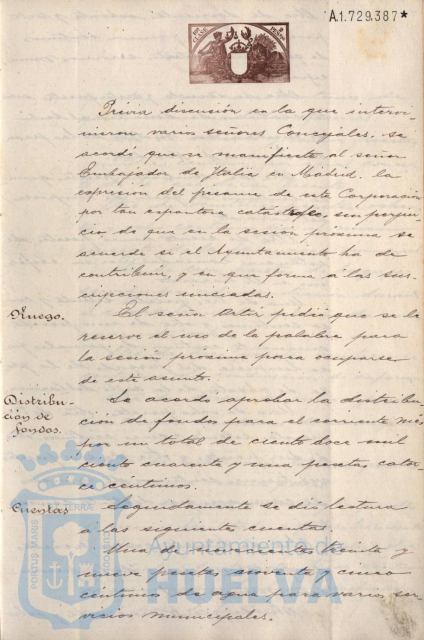 A.1.729.387*
Previa discusión en la que intervi-
nieron varios señores Concejales, se
acordó que se manifieste al señor
Embajador de Italia en Madrid, la
expresión del pésame de esta Corporación
por tan espantosa catástrofe, sin perjui-
cio, de que en la sesión próxima, se
acuerde si el Ayuntamiento ha de
contribuir, y en que forma á las sus-
cripciones iniciadas.
Ruego.
El señor pidió que se le
reserve el uso de la palabra para
la sesión próxima para ocuparse
de este asunto.
Distribu-
ción de
fondos.
Se acordó aprobar la distribu-
ción de fondos para el corriente mes
por un total de ciento doce mil
ciento cuarenta y una pesetas cator-
ce céntimos.
Cuentas
Seguidamente se dió lectura
a las siguiente cuentas.
Una de novecientas treinta y
nueve pesetas noventa y cinco
centimos de agua para varios ser-
vicios municipales.
Ayuntamiento de
HUELVA
PORTUS MARIS ET TERRAE CUSTODIA